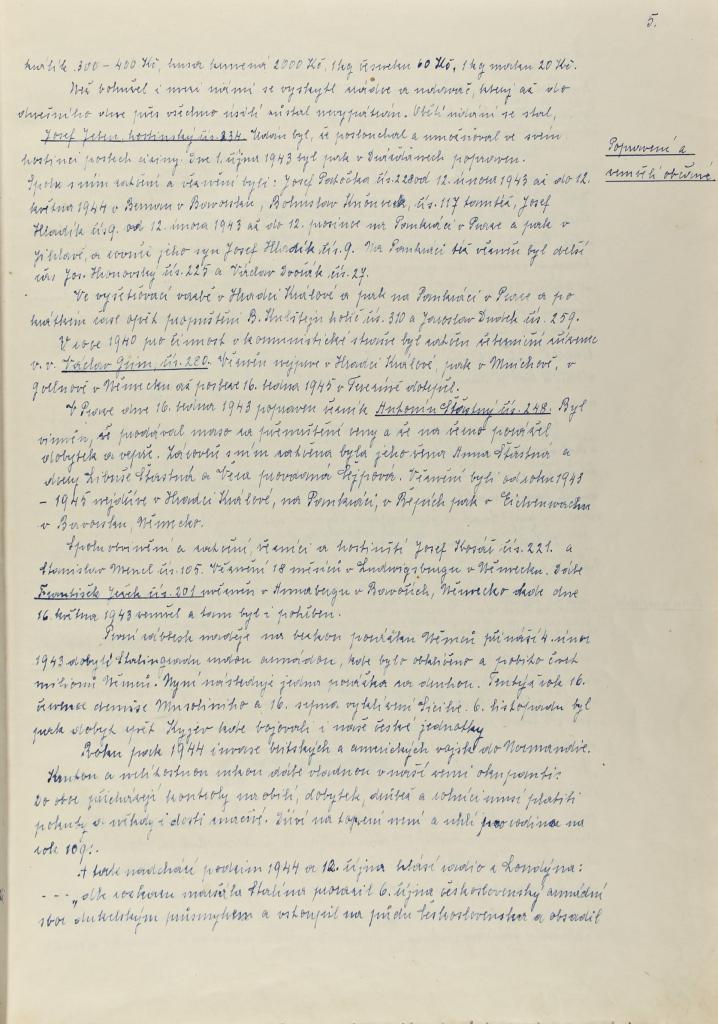 5.
králík 300 – 400 Kč, husa krmená 2000 Kč, 1 kg česneku 60 Kč, 1 kg mrkve 20 Kč.
Než bohužel i mezi námi se vyskytl zrádce a udavač, který až do
dnešního dne přes všechno úsilí zůstal nevypátrán. Obětí udání se stal,
Josef Jeten, hostinský čís. 234. Udán byl, že poslouchal a umožňoval ve svém
hostinci poslech ciziny. Dne 1. října 1943 byl pak v Drážďanech popraven.
Popravení a
zemřelí občané
Spolu s ním zatčeni a vězněni byli: Josef Patočka čís. 228 od 12. února 1943 až do 12.
května 1944 v Bernau v Bavorsku, Bohuslav čís. 117 tamtéž, Josef
Hladík čís 9. od 12. února 1943 až do 12. prosince na Pankráci v Praze a pak v
Jihlavě, a rovněž jeho syn Josef Hladík čís. 9. Na Pankráci též vězněn byl delší
čas Jos. Hronovský čís. 225 a Václav Dvořák čís. 27.
Ve vyšetřovací vazbě v Hradci Králové a pak na Pankráci v Praze a po
krátkém čase opět propuštěni B. holič čís. 310 a Jaroslav čís. 259.
V roce 1940 pro činnost v komunistické straně byl zatčen
v. v. Václav čís. 280. Vězněn nejprve v Hradci Králové, pak v Mnichově, v
Gollnově v Německu až posléze 16. ledna 1945 v Terezíně dotrpěl.
V Praze dne 16. ledna 1943 popraven řezník Antonín Šťastný čís. 248. Byl
viněn, že prodával maso za přemrštěné ceny a že na černo porážel
dobytek a vepře. Zároveň s ním zatčena byla jeho žena Anna Šťastná a
dcery Libuše Šťastná a Věra provdaná Šejpová. Vězněni byli od roku 1943
– 1945 nejdříve v Hradci Králové, na Pankráci, v Řepích pak v
v Bavorsku, Německo.
Spoluobviněni a zatčeni, řezníci a hostinští Josef Kosař čís. 221. a
Stanislav Mencl čís. 105. Vězněni 18 měsíců v Ludwigsburgu v Německu. Dále
František Ježek čís. 201 vězněn v Annabergu v Bavořích, Německo kde dne
16. května 1943 zemřel a tam byl i pohřben.
První záblesk naděje na brzkou porážku Němců přináší 4. únor
1943 dobytí Stalingradu rudou armádou, kde bylo obklíčeno a pobito čtvrt
milionu Němců. Nyní následuje jedna porážka za druhou. Tentýž rok 16.
července demise Musoliniho a 16. srpna vyklizení Sicilie. 6. listopadu byl
pak dobyt zpět Kyjev kde bojovali i naše české jednotky.
Roku pak 1944 invase britských a amerických vojsk do Normandie.
Krutou a nelítostnou rukou dále vládnou v naší zemi okupanti:
Do obce přicházejí kontroly na obilí, dobytek, drůbež a rolníci musí platiti
pokuty a někdy i dosti značné. Dříví na topení není a uhlí pro rodinu na
rok 10 q.
A tak nadchází podzim 1944 a 12. října hlásí radio z Londýna:
- - - „dle rozkazu maršála Stalina prorazil 6. října československý armádní
sbor dukelským průsmykem a vstoupil na půdu Československa a obsadil